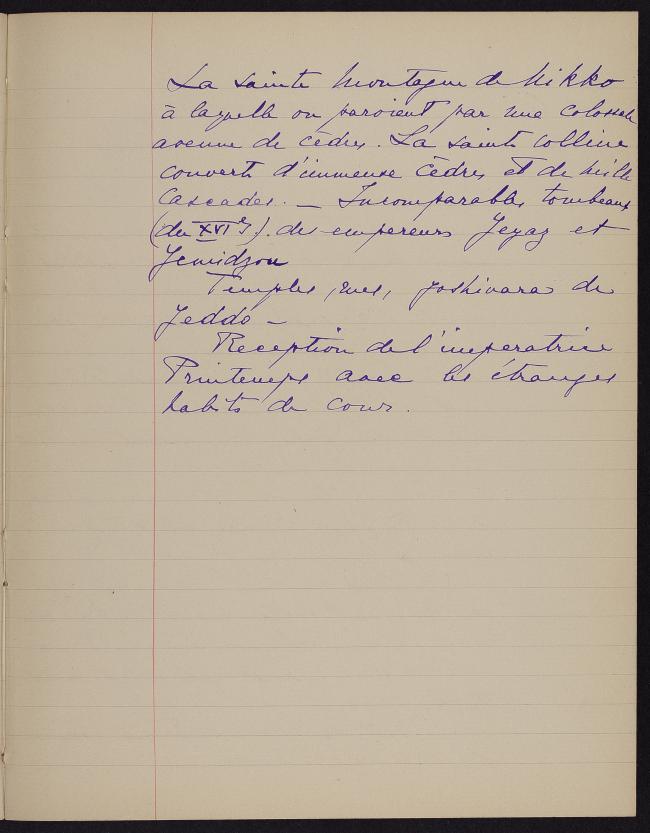 La sainte montagne de Nikko
à laquelle on parvient par une colossale
avenue de cèdres. La sainte colline
couverte d'immense cèdres et de mille
Cascades. — Incomparables tombeaux
(du XVIe S). des empereurs Yeyaz et
Yemidzou
Temples, rues, yoshivara de
Yeddo —
Réception de l'impératrice
Printemps avec les étranges
habits de cour.